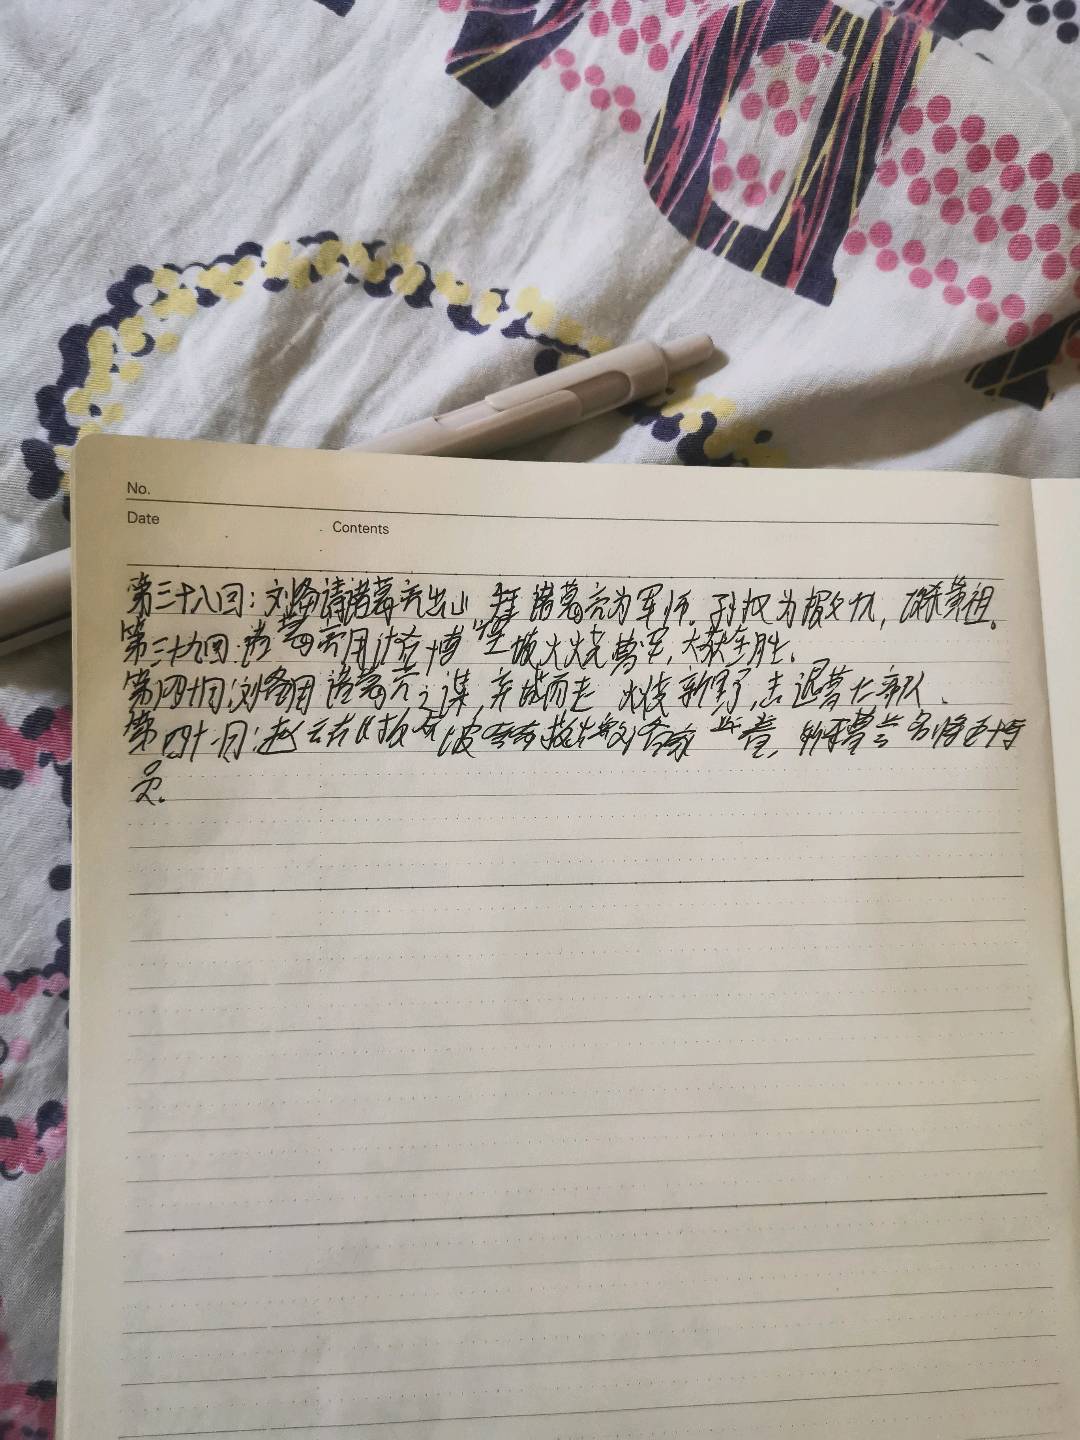 No.
Date
Contents
第三十八回：刘备请诸葛亮出山 拜诸葛亮为军师。孙权为报父仇，破黄祖。
第三十九回：诸葛亮用计在博望坡火烧曹军，大获全胜。
第四十回：刘备用诸葛亮之谋，弃城而走 火烧新野，击退曹仁部队、
第四十一回：赵云在长板坡 救出刘备家 ，斩曹营名将五十
员。